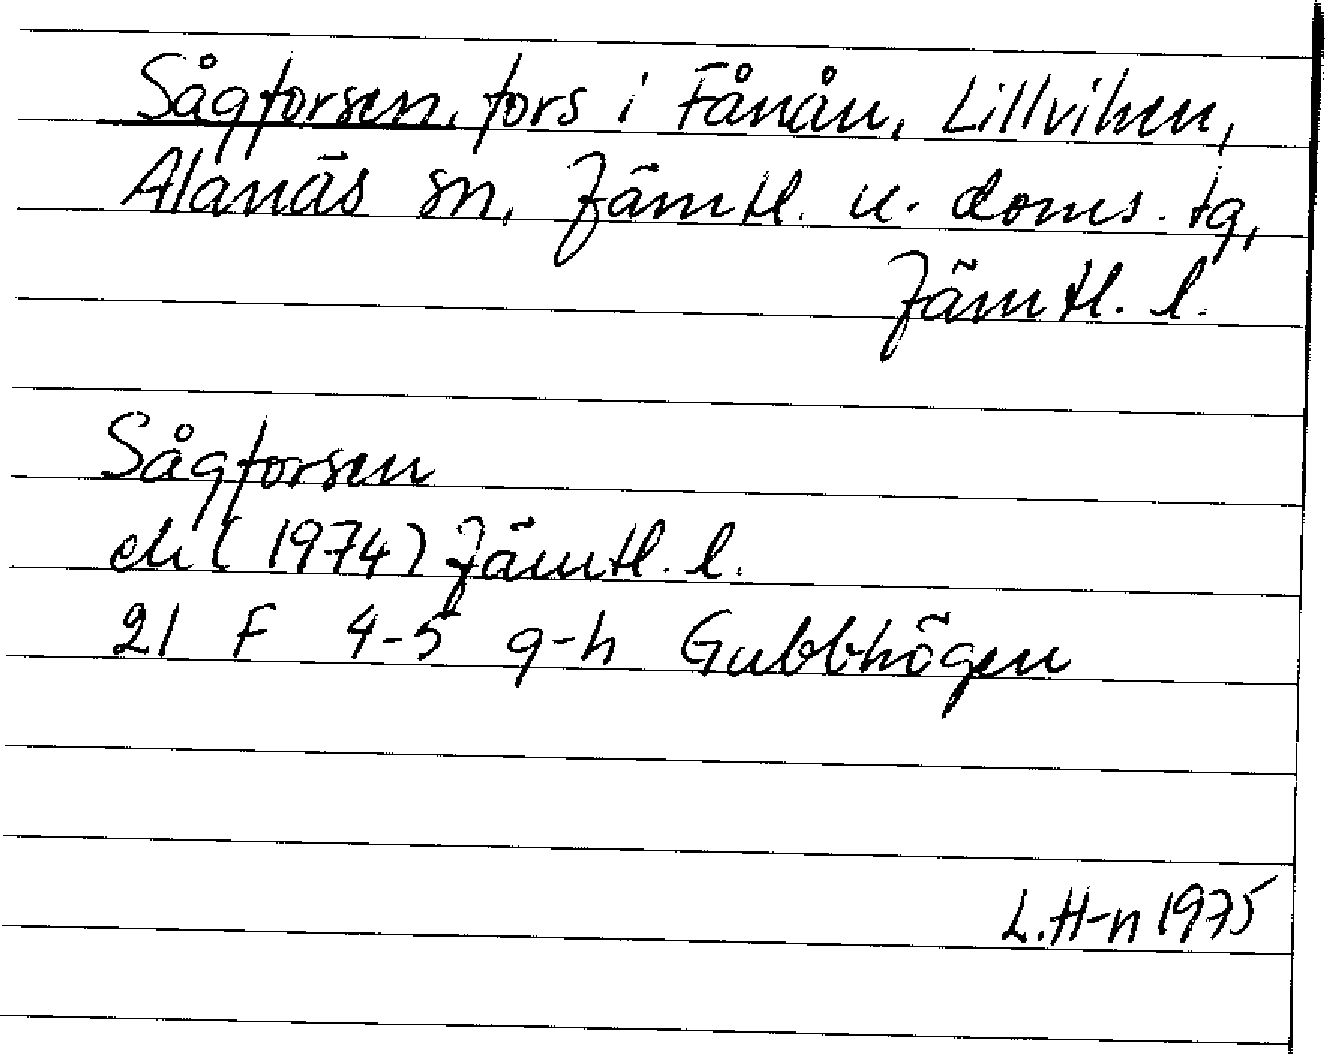 Sågforsen, fors i Fånån, Lillviken,
Alanäs sn, Jämtl. n. doms. tg,
Jämtl. l.
Sågforsen
ek (1974) Jämtl. l.
21 F 4-5 g-h Gubbhögen
L.H-n 1975